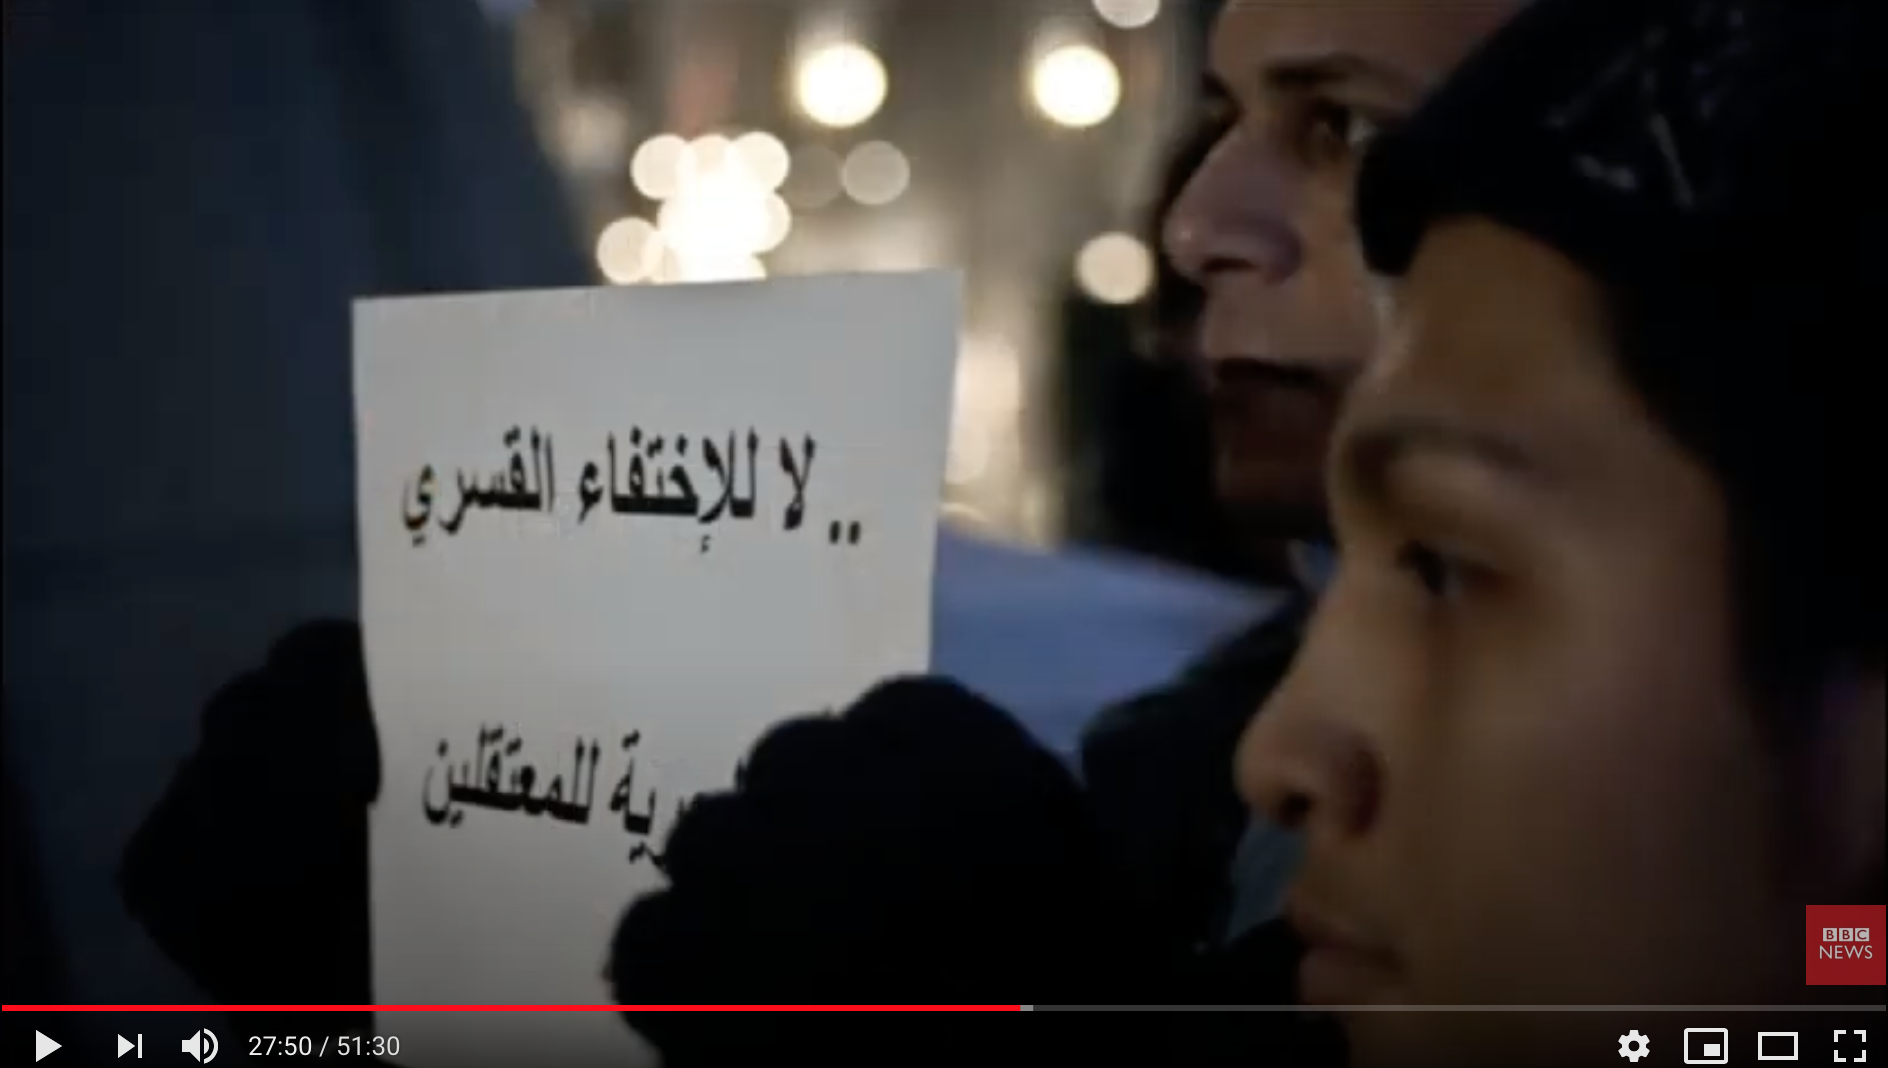 .. لا للإختفاء القسري
للمعتقلين
BBC
NEWS
27:50 / 51:30